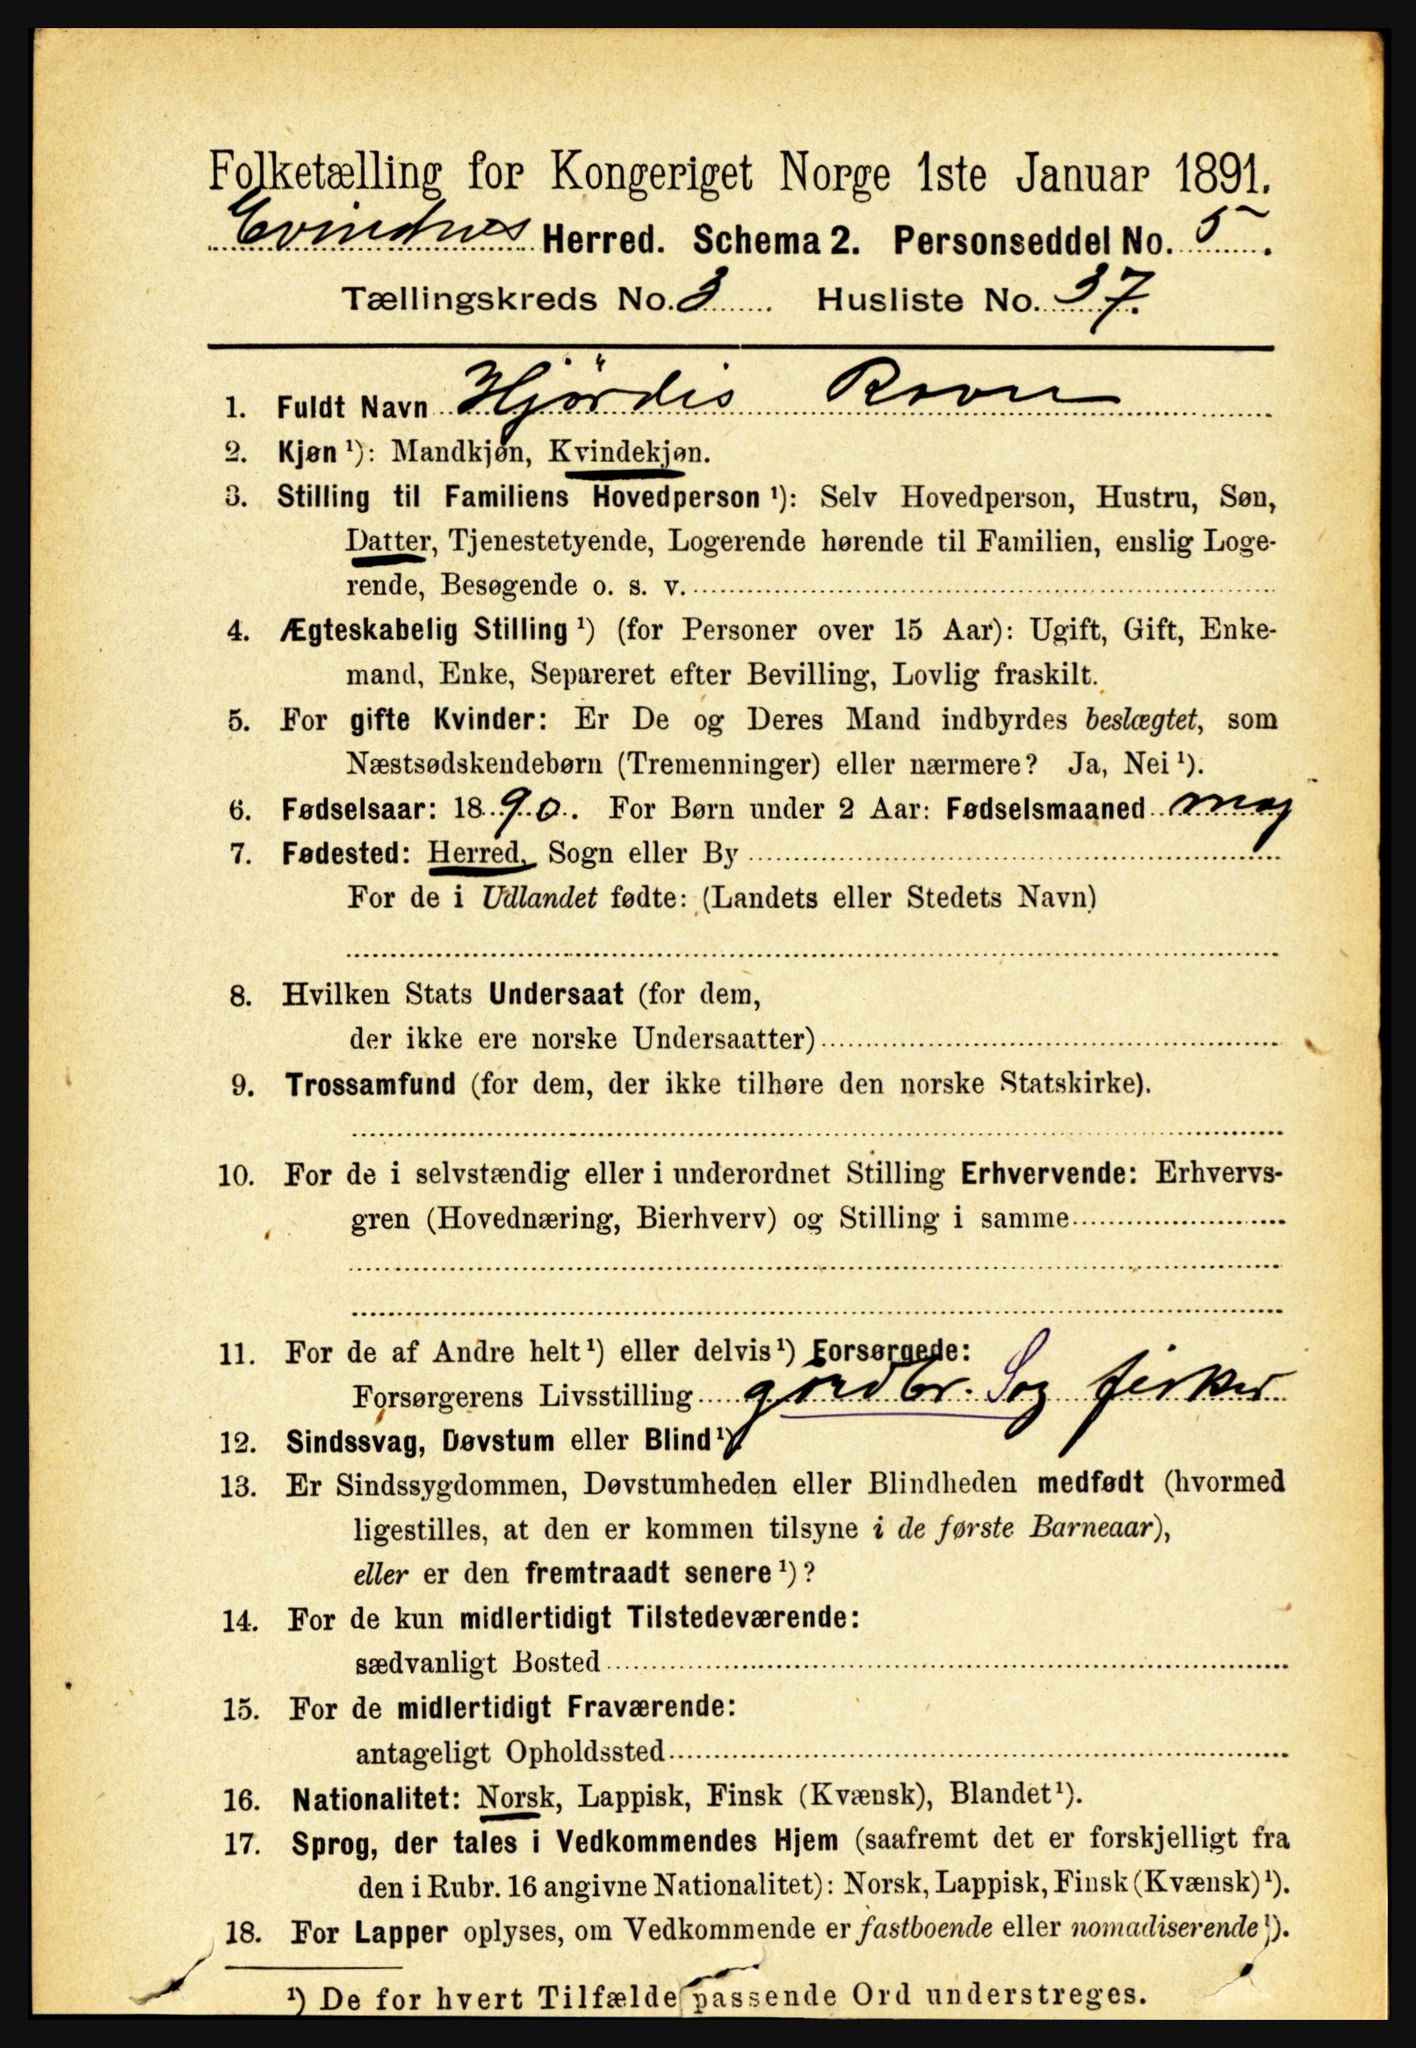 Folketælling for Kongeriget Norge 1ste Januar 1891.
Evindnes Herred. Schema 2. Personseddel No. 5.
Tællingskreds No. 3 Husliste No. 37.
1. Fuldt Navn Hjördis Ravn
2. Kjøn ¹): Mandkjøn, Kvindekjøn.
3. Stilling til Familiens Hovedperson ¹): Selv Hovedperson, Hustru, Søn,
Datter, Tjenestetyende, Logerende hørende til Familien, enslig Loge-
rende, Besøgende o. s. v.
4. Ægteskabelig Stilling ¹) (for Personer over 15 Aar): Ugift, Gift, Enke-
mand, Enke, Separeret efter Bevilling, Lovlig fraskilt.
5. For gifte Kvinder: Er De og Deres Mand indbyrdes beslægtet, som
Næstsødskendebørn (Tremenninger) eller nærmere? Ja, Nei ¹).
6. Fødselsaar: 1890. For Børn under 2 Aar: Fødselsmaaned maj
7. Fødested: Herred, Sogn eller By
For de i Udlandet fødte: (Landets eller Stedets Navn)
8. Hvilken Stats Undersaat (for dem,
der ikke ere norske Undersaatter)
9. Trossamfund (for dem, der ikke tilhøre den norske Statskirke).
10. For de i selvstændig eller i underordnet Stilling Erhvervende: Erhvervs-
gren (Hovednæring, Bierhverv) og Stilling i samme
11. For de af Andre helt ¹) eller delvis ¹) Forsørgede:
Forsørgerens Livsstilling gårdbr. S og fisker
12. Sindssvag, Døvstum eller Blind ¹).
13. Er Sindssygdommen, Døvstumheden eller Blindheden medfødt (hvormed
ligestilles, at den er kommen tilsyne i de første Barneaar),
eller er den fremtraadt senere ¹)?
14. For de kun midlertidigt Tilstedeværende:
sædvanligt Bosted
15. For de midlertidigt Fraværende:
antageligt Opholdssted
16. Nationalitet: Norsk, Lappisk, Finsk (Kvænsk), Blandet ¹).
17. Sprog, der tales i Vedkommendes Hjem (saafremt det er forskjelligt fra
den i Rubr. 16 angivne Nationalitet): Norsk, Lappisk, Finsk (Kvænsk) ¹).
18. For Lapper oplyses, om Vedkommende er fastboende eller nomadiserende ¹).
¹) De for hvert Tilfælde passende Ord understreges.